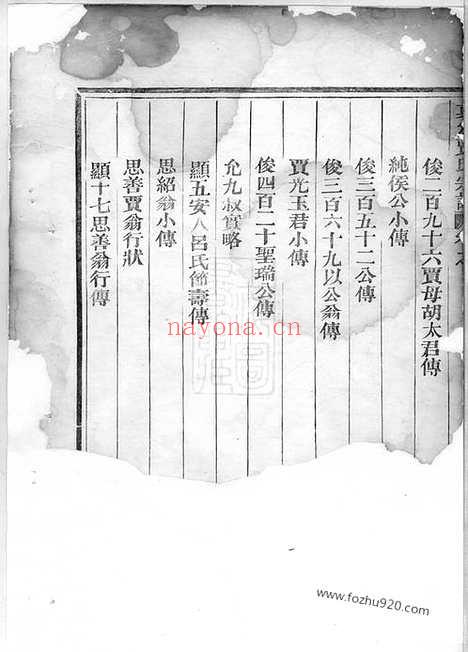 俊二百九十六賈母胡太君傳
純侯公小傳
俊三百五十二公傳
俊三百六十九以公翁傳
賈光玉君小傳
俊四百二十聖瑞公傳
允九叔實略
顯五安人呂氏節壽傳
思紹翁小傳
思善賈翁行狀
顯十七思善翁行傳
nayona.cn
www.fozhu920.com